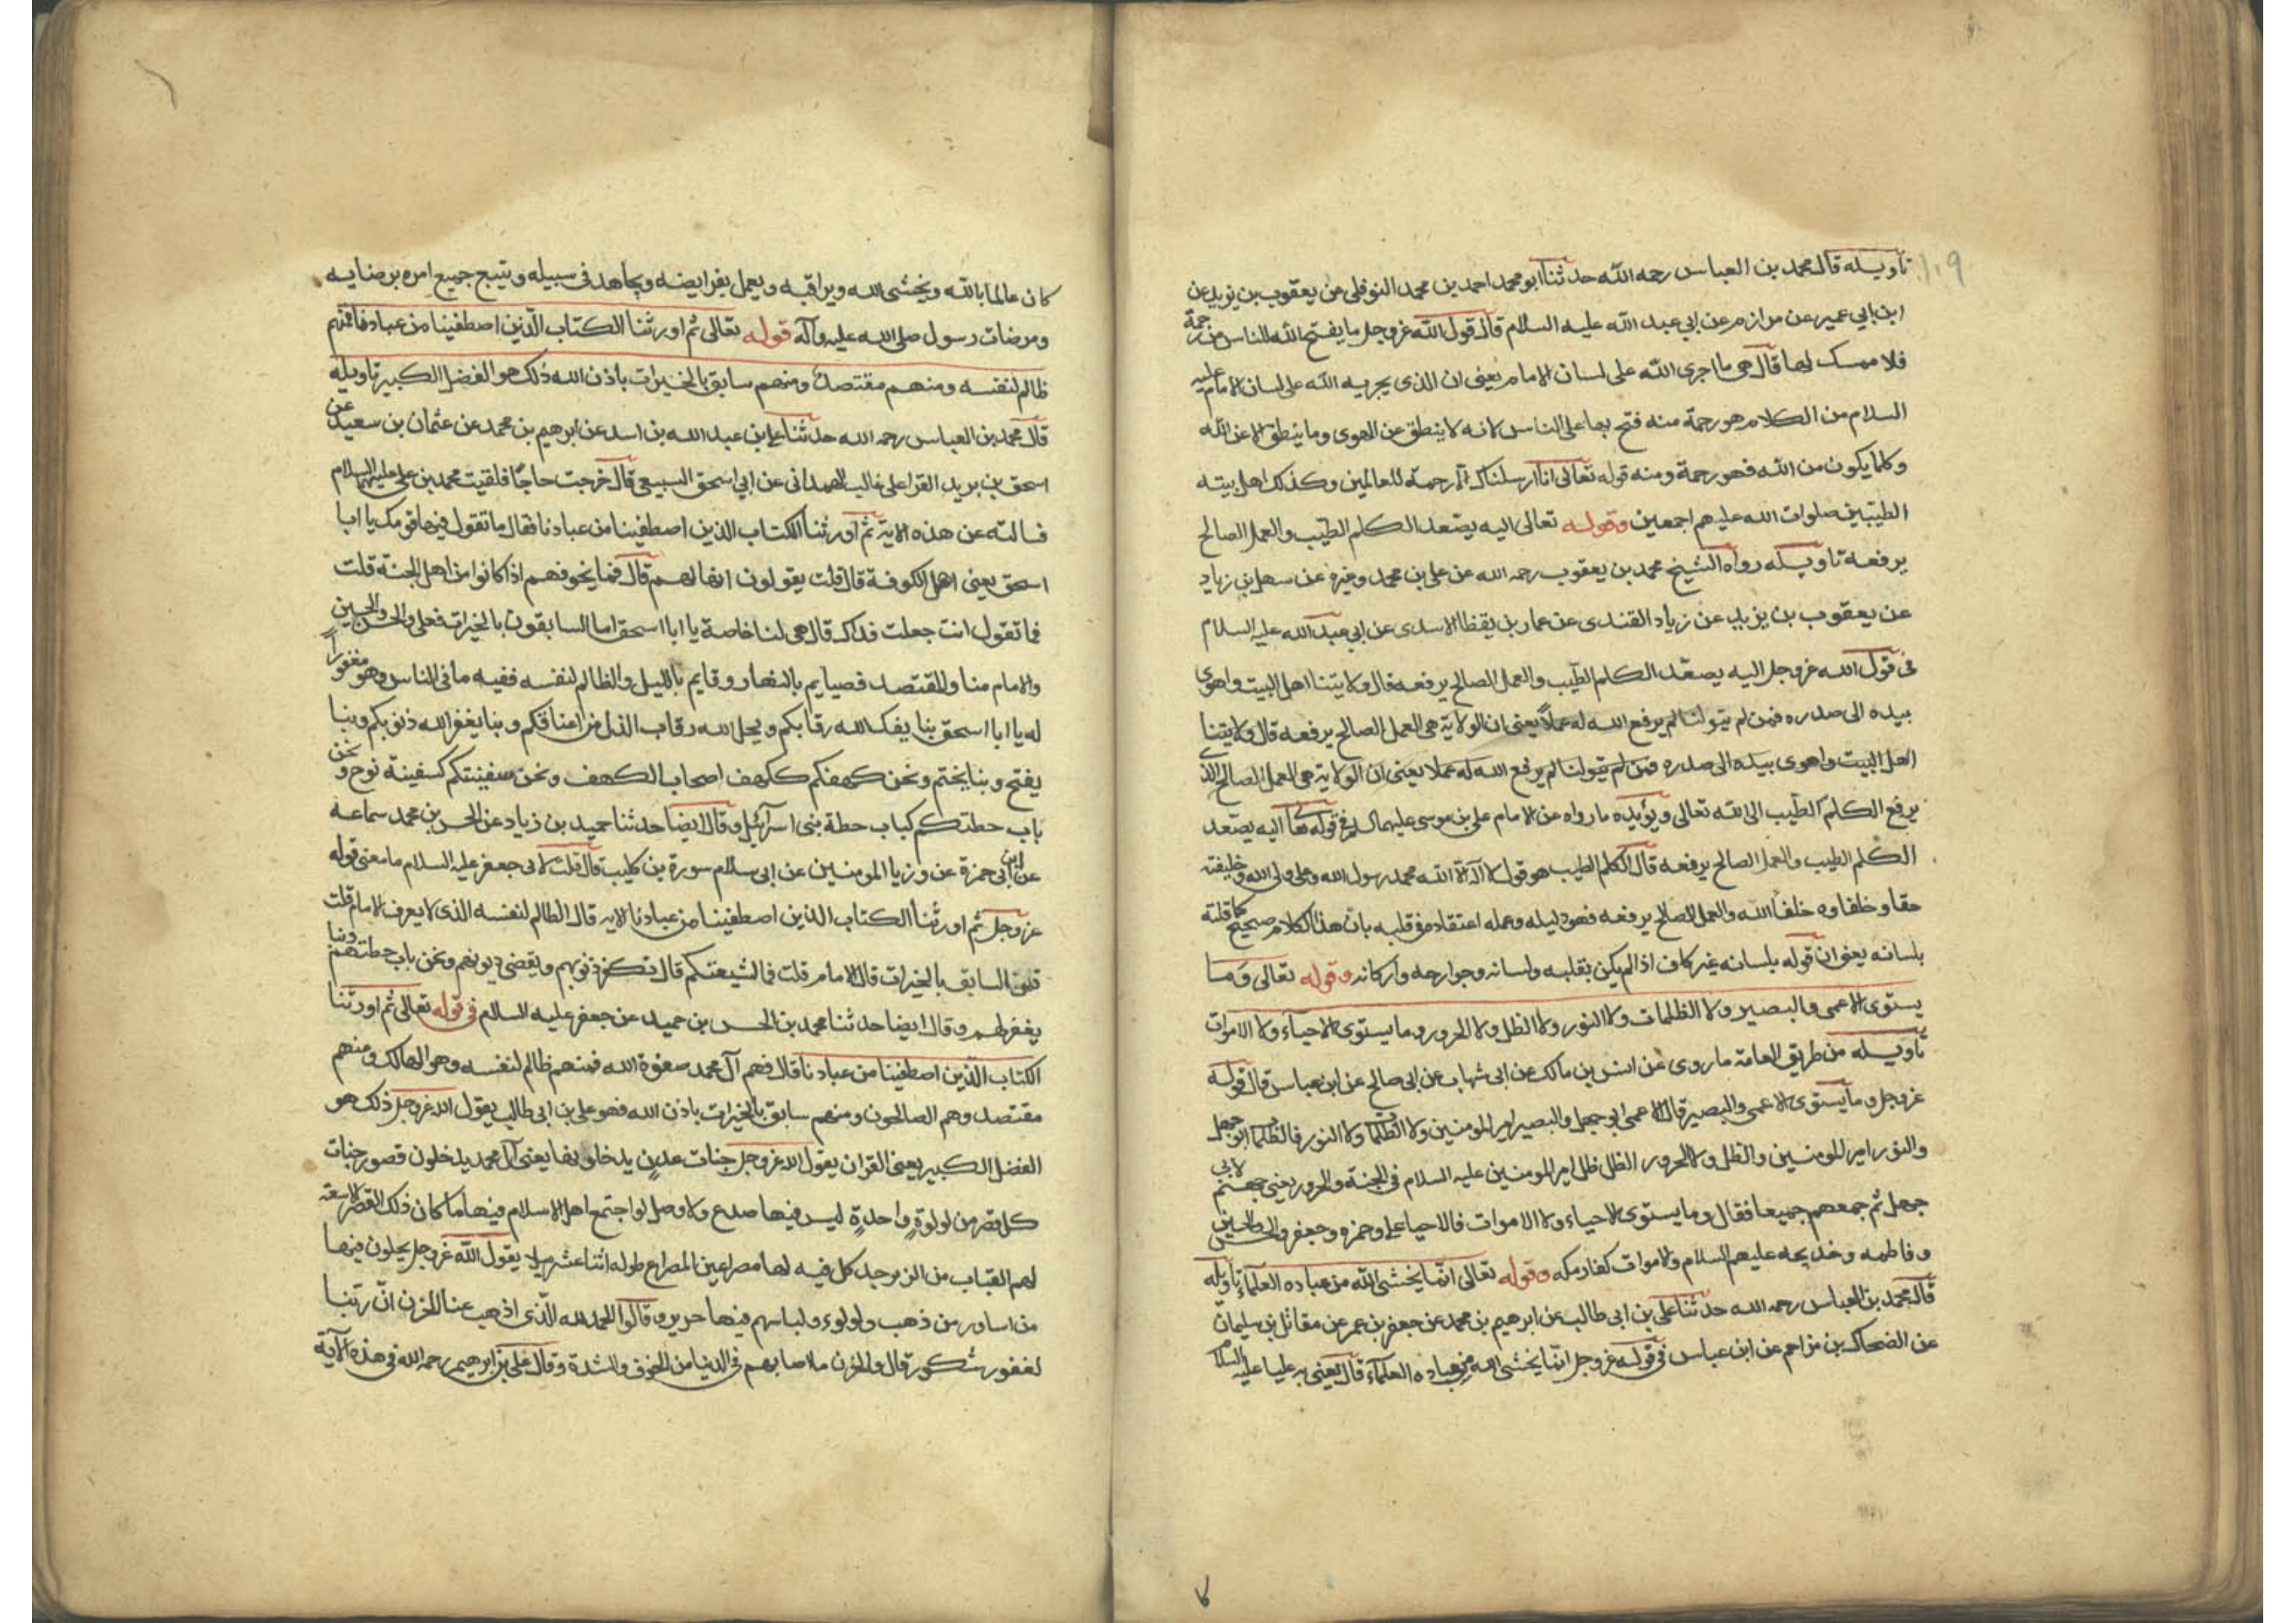 ١٠٩
تاويله قال محمد بن العباس رحمه الله حدثنا ابو محمد احمد بن محمد النوفلي عن يعقوب بن يزيد عن
ابن ابي عمير عن مرازم عن ابي عبد الله عليه السلام قال قول الله عز وجل ما يفتح الله للناس من رحمة
فلا ممسك لها قال هي ما اجرى الله على لسان الامام يعني ان الذي يجريه الله على لسان الامام عليه
السلام من الكلام هو رحمة منه فتح بها على الناس لانه لا ينطق عن الهوى وما ينطق الا عن الله
وكلما يكون من الله فهو رحمة ومنه قوله تعالى انا ارسلناك الا رحمة للعالمين وكذلك اهل بيته
الطيبين صلوات الله عليهم اجمعين وقوله تعالى اليه يصعد الكلم الطيب والعمل الصالح
يرفعه تاويله رواه الشيخ محمد بن يعقوب رحمه الله عن علي بن محمد وغيره عن سهل بن زياد
عن يعقوب بن يزيد عن زياد القندي عن عمار بن يقظا الاسدي عن ابي عبد الله عليه السلام
في قول الله عز وجل اليه يصعد الكلم الطيب والعمل الصالح يرفعه قال ولايتنا اهل البيت واهوى
بيده الى صدره فمن لم يتولنا لم يرفع الله له عملا يعني ان الولاية هي العمل الصالح يرفعه قال ولايتنا
اهل البيت واهوى بيده الى صدره فمن لم يتولنا لم يرفع الله له عملا يعني ان الولاية هي العمل الصالح الذي
يرفع الكلم الطيب الى الله تعالى ويؤيده ما رواه عن الامام علي بن موسى عليهما السلم في قوله تعا اليه يصعد
الكلم الطيب والعمل الصالح يرفعه قال الكلم الطيب هو قول لا اله الا الله محمد رسول الله وعلي ولي الله وخليفته
حقا وخلفاوه خلفا الله والعمل الصالح يرفعه فهو دليله وعمله اعتقاده في قلبه بان هذا الكلام صحيح كما قلته
بلسانه يعني ان قوله بلسانه غير كاف اذا لم يكن بقلبه ولسانه وجوارحه واركانه وقوله تعالى وما
يستوى الاعمى والبصير ولا الظلمات ولا النور ولا الظل ولا الحرور وما يستوى الاحياء ولا الاموات
تاويله من طريق العامة ما روى عن انس بن مالك عن ابي شهاب عن ابي صالح عن ابن عباس قال قوله
عز وجل وما يستوى الاعمى والبصير قال الاعمى ابو جهل والبصير امير المومنين ولا الظلمات ولا النور فالظلمات ابو جهل
والنور امير المومنين والظل ولا الحرور الظل ظل امير المومنين عليه السلام في الجنة والحرور يعني جهنم لابي
جهل ثم جمعهم جميعا فقال وما يستوى الاحياء ولا الاموات فالاحيا علي وحمزه وجعفر والحسن والحسين
وفاطمه وخديجه عليهم السلام والاموات كفار مكه وقوله تعالى انما يخشى الله من عباده العلماء تاويله
قال محمد بن العباس رحمه الله حدثنا علي بن ابي طالب عن ابرهيم بن محمد عن جعفر بن عمر عن مقاتل بن سليمان
عن الضحاك بن مزاحم عن ابن عباس في قوله عز وجل انما يخشى الله من عباده العلماء قال يعني به عليا عليه السلام
كان عالما بالله ويخشى الله ويراقبه ويعمل بفرايضه ويجاهد في سبيله ويتبع جميع امره برضايه
ومرضات رسول صلى الله عليه وآله قوله تعالى ثم اورثنا الكتاب الذين اصطفينا من عبادنا فمنهم
ظالم لنفسه ومنهم مقتصد ومنهم سابق بالخيرات باذن الله ذلك هو الفضل الكبير تاويله
قال محمد بن العباس رحمه الله حدثنا علي بن عبد الله بن اسد عن ابرهيم بن محمد عن عثمان بن سعيد عن
اسحق بن يريد الفرا على غالب الهمداني عن ابي اسحق السبيعي قال خرجت حاجا فلقيت محمد بن علي عليهما السلام
فسالته عن هذه الاية ثم اورثنا الكتاب الذين اصطفينا من عبادنا فقال ما تقول فيها قومك يا ابا
اسحق يعني اهل الكوفة قال قلت يقولون انها لهم قال فما يخوفهم اذا كانوا من اهل الجنة قلت
فما تقول انت جعلت فداك قال هي لنا خاصة يا ابا اسحق اما السابقون بالخيرات فعلي والحسن والحسين
والامام منا والمقتصد فصايم بالنهار وقايم بالليل والظالم لنفسه ففيه ما في الناس وهو مغفور
له يا ابا اسحق بنا يفك الله رقابكم ويحل الله رقاب الذل من اعناقكم وبنا يغفر الله ذنوبكم وبنا
يفتح وبنا يختم ونحن كهفكم ككهف اصحاب الكهف ونحن سفينتكم كسفينة نوح ونحن
باب حطتكم كباب حطة بني اسرائيل وقال ايضا حدثنا حميد بن زياد عن الحسن بن محمد سماعه
عن ابن ابي حمزة عن وزيا المومنين عن ابي سلام سورة بن كليب قال قلت لابي جعفر عليه السلام ما معنى قوله
عز وجل ثم اورثنا الكتاب الذين اصطفينا من عبادنا الايه قال الظالم لنفسه الذي لا يعرف الامام قلت
فمن السابق بالخيرات قال الامام قلت فما لشيعتكم قال تكفر ذنوبهم ويقضى ديونهم ونحن باب حطتهم وبنا
يغفر لهم وقال ايضا حدثنا محمد بن الحسن بن حميد عن جعفر عليه السلام في قوله تعالى ثم اورثنا
الكتاب الذين اصطفينا من عبادنا قال فهم آل محمد صفوة الله فمنهم ظالم لنفسه وهو الهالك ومنهم
مقتصد وهم الصالحون ومنهم سابق بالخيرات باذن الله فهو علي بن ابي طالب يقول الله عز وجل ذلك هو
الفضل الكبير يعني القران يقول الله عز وجل جنات عدن يدخلونها يعني آل محمد يدخلون قصور جنات
كل قصر من لولوة واحدة ليس فيها صدع ولا وصل لو اجتمع اهل الاسلام فيها ما كان ذلك القصر الا سعة
لهم القباب من الزبرجد كل فيه لها مصراعين المصراع طوله اثنا عشر ميلا يقول الله عز وجل يحلون فيها
من اساور من ذهب ولولوء ولباسهم فيها حرير وقالوا الحمد لله الذي اذهب عنا الحزن ان ربنا
لغفور شكور قال والحزن ما اصابهم في الدنيا من الخوف والشدة وقال علي بن ابرهيم رحمه الله في هذه الآية